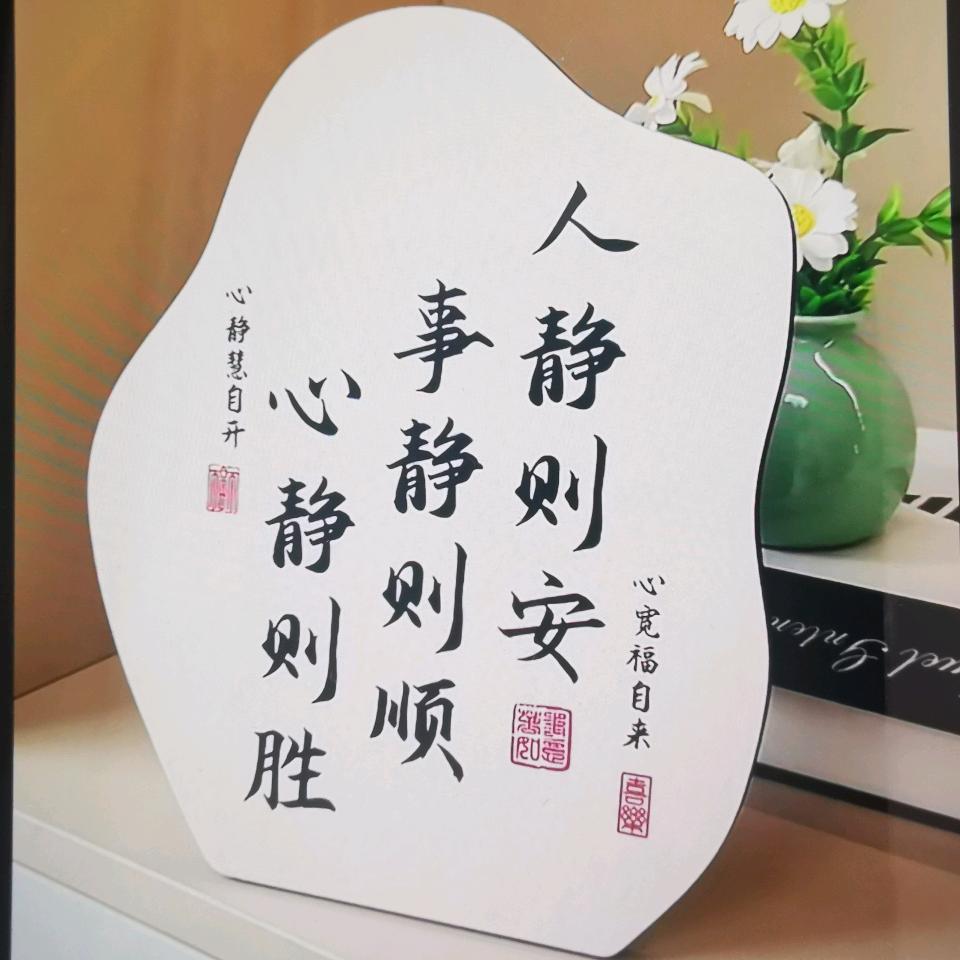 心宽福自来
喜樂
人静则安
事静则顺
心静则胜
心静慧自开